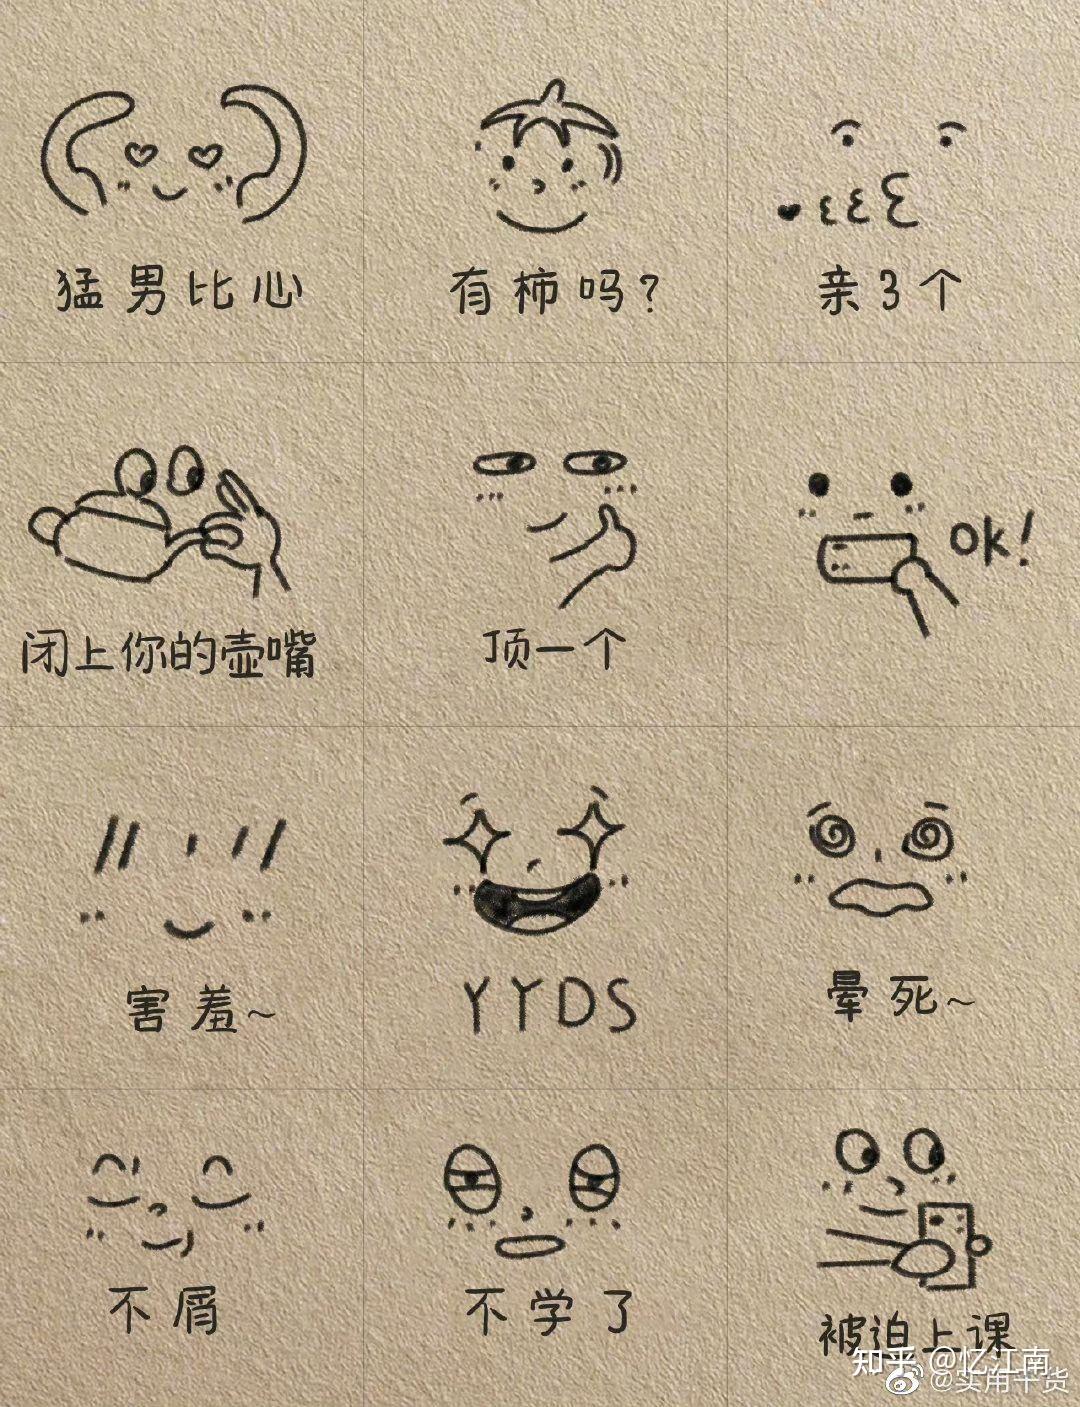 猛男比心
有柿吗?
亲3个
闭上你的壶嘴
顶一个
ok!
害羞~
YYDS
晕死~
不屑
不学了
被迫上课
知乎 @忆江南
@实用干货